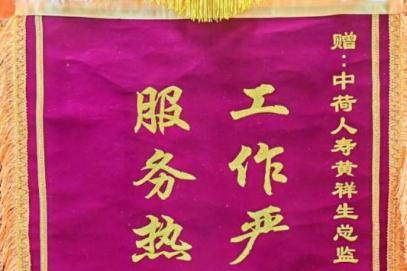 赠:中荷人寿黄祥生总监
工作严
服务热